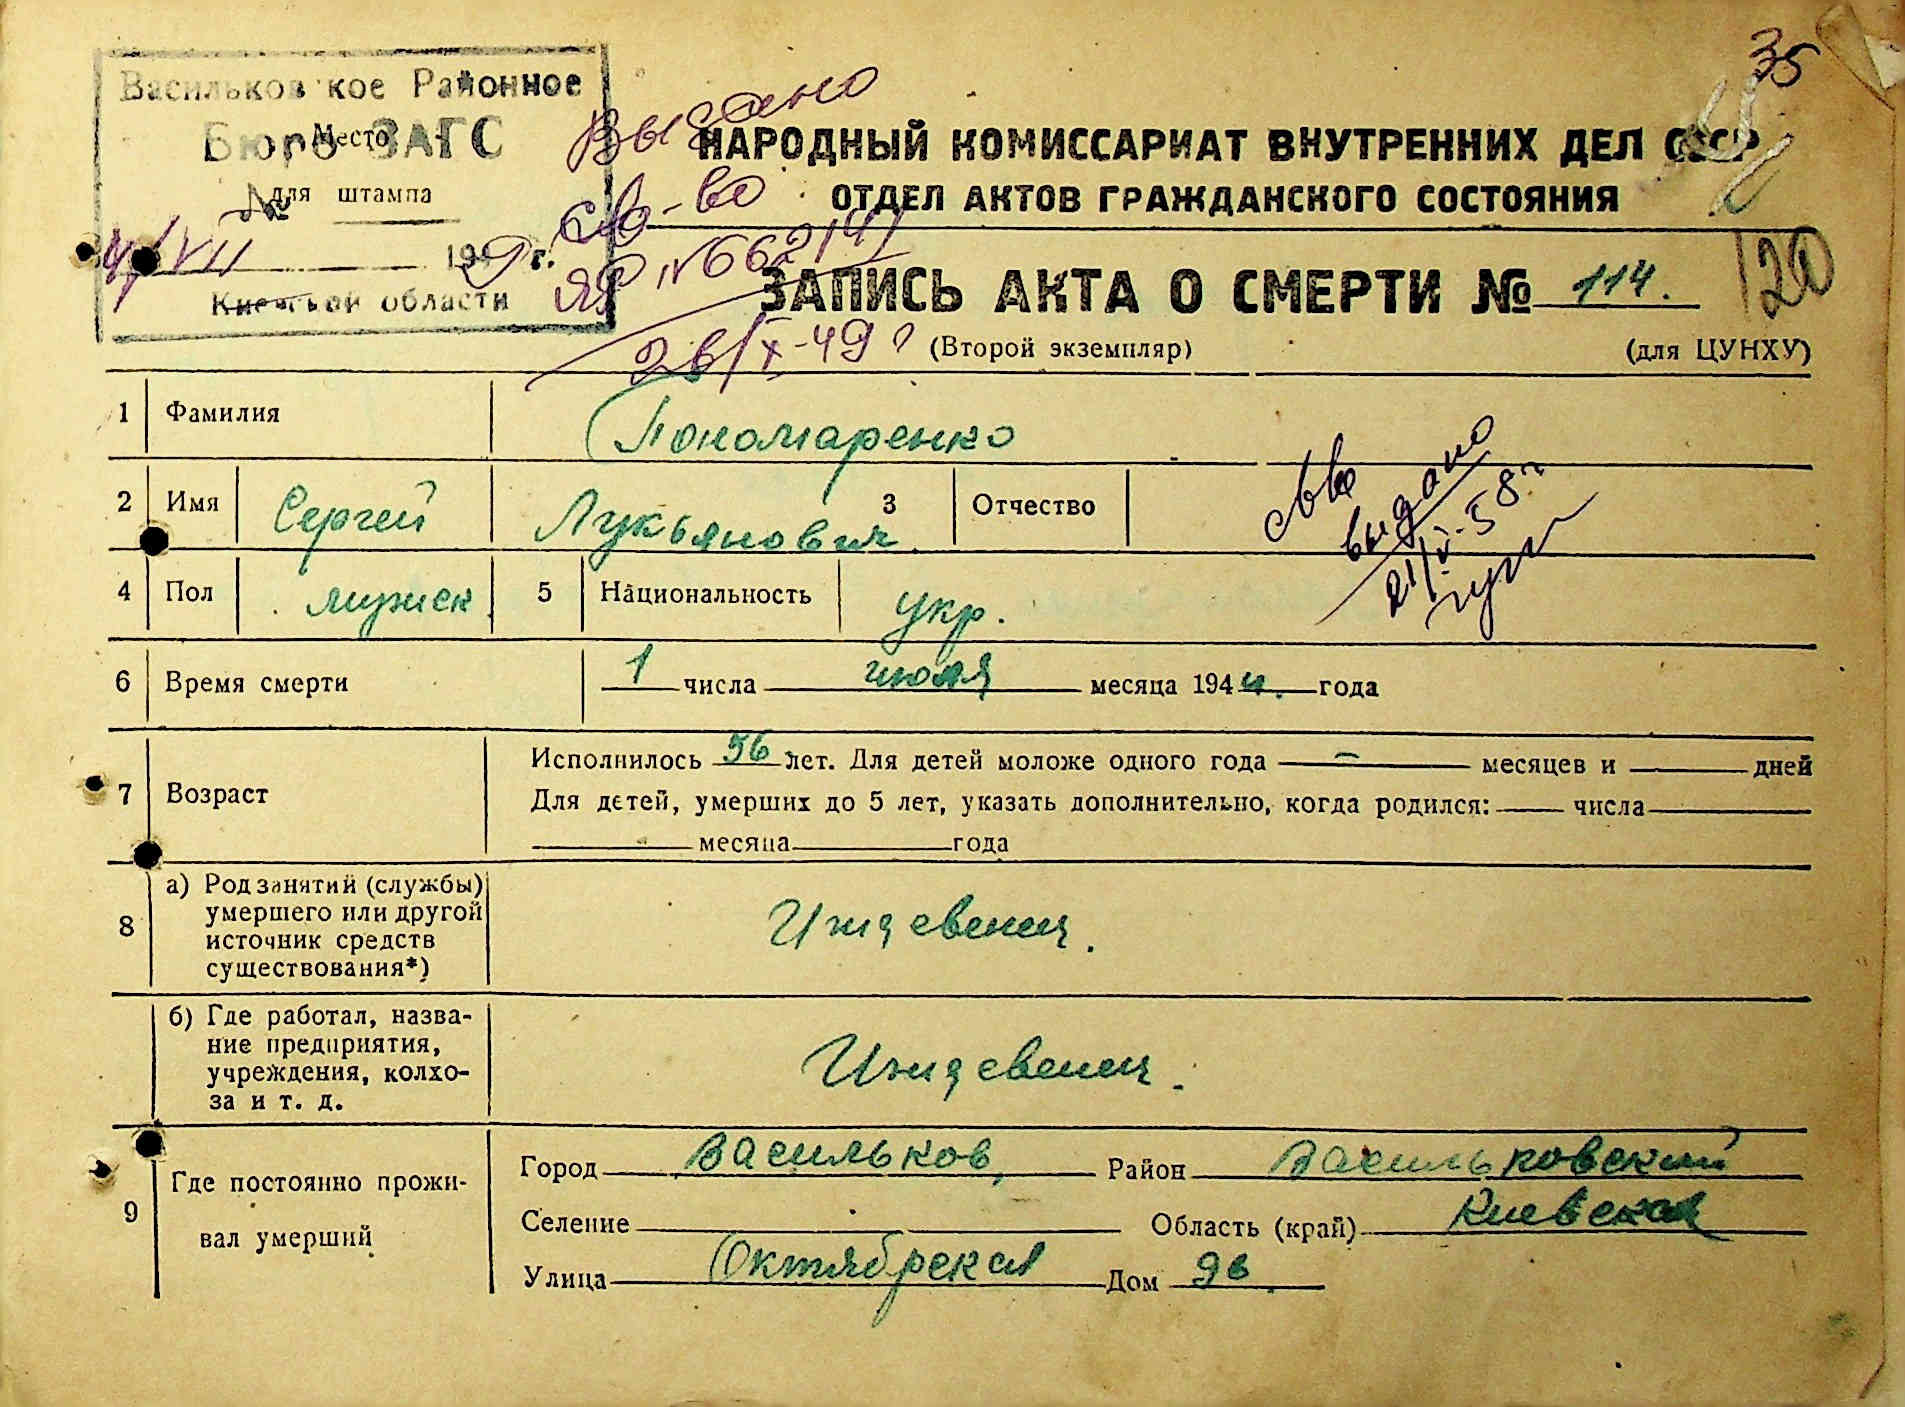 35
Васильковское Районное
Бюро ЗАГС
Место
для штампа
№
4/VII 194 г.
Киевской области
Выдано
св-во
ЯР № 066214
26/X-49 г
НАРОДНЫЙ КОМИССАРИАТ ВНУТРЕННИХ ДЕЛ СССР
ОТДЕЛ АКТОВ ГРАЖДАНСКОГО СОСТОЯНИЯ
ЗАПИСЬ АКТА О СМЕРТИ № 114.
120
(Второй экземпляр) (для ЦУНХУ)
1 Фамилия Пономаренко
2 Имя Сергей Лукьянович 3 Отчество
выдано
21/V-58 г
4 Пол мужск. 5 Национальность укр.
6 Время смерти 1 числа июля месяца 1944. года
7 Возраст Исполнилось 56 лет. Для детей моложе одного года — месяцев и дней
Для детей, умерших до 5 лет, указать дополнительно, когда родился: числа
месяца года
8 а) Род занятий (службы)
умершего или другой
источник средств
существования*)
Иждевенец.
б) Где работал, назва-
ние предприятия,
учреждения, колхо-
за и т. д.
Иждевенец.
9 Где постоянно прожи-
вал умерший
Город Васильков, Район Васильковский
Селение Область (край) Киевская
Улица Октябрская Дом 9в